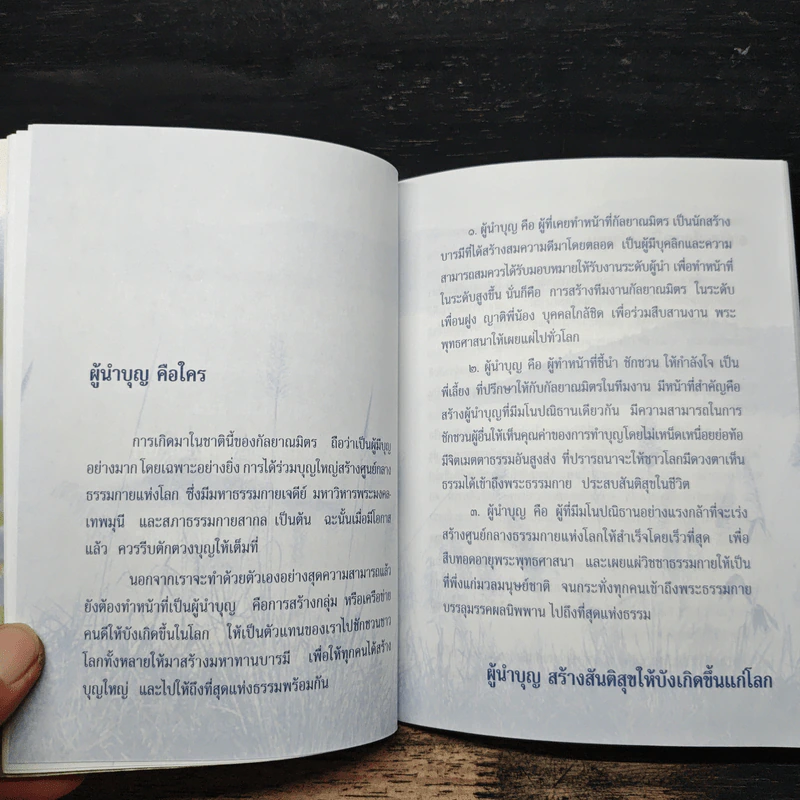 ผู้นำบุญ คือใคร
การเกิดมาในชาตินี้ของกัลยาณมิตร ถือว่าเป็นผู้มีบุญ
อย่างมาก โดยเฉพาะอย่างยิ่ง การได้ร่วมบุญใหญ่สร้างศูนย์กลาง
ธรรมกายแห่งโลก ซึ่งมีมหาธรรมกายเจดีย์ มหาวิหารพระมงคล-
เทพมุนี และสภาธรรมกายสากล เป็นต้น ฉะนั้นเมื่อมีโอกาส
แล้ว ควรรีบตักตวงบุญให้เต็มที่
นอกจากเราจะทำด้วยตัวเองอย่างสุดความสามารถแล้ว
ยังต้องทำหน้าที่เป็นผู้นำบุญ คือการสร้างกลุ่ม หรือเครือข่าย
คนดีให้บังเกิดขึ้นในโลก ให้เป็นตัวแทนของเราไปชักชวนชาว
โลกทั้งหลายให้มาสร้างมหาทานบารมี เพื่อให้ทุกคนได้สร้าง
บุญใหญ่ และไปให้ถึงที่สุดแห่งธรรมพร้อมกัน
๑. ผู้นำบุญ คือ ผู้ที่เคยทำหน้าที่กัลยาณมิตร เป็นนักสร้าง
บารมีที่ได้สร้างสมความดีมาโดยตลอด เป็นผู้มีบุคลิกและความ
สามารถสมควรได้รับมอบหมายให้รับงานระดับผู้นำ เพื่อทำหน้าที่
ในระดับสูงขึ้น นั่นก็คือ การสร้างทีมงานกัลยาณมิตร ในระดับ
เพื่อนฝูง ญาติพี่น้อง บุคคลใกล้ชิด เพื่อร่วมสืบสานงาน พระ
พุทธศาสนาให้เผยแผ่ไปทั่วโลก
๒. ผู้นำบุญ คือ ผู้ทำหน้าที่ชี้นำ ชักชวน ให้กำลังใจ เป็น
พี่เลี้ยง ที่ปรึกษาให้กับกัลยาณมิตรในทีมงาน มีหน้าที่สำคัญคือ
สร้างผู้นำบุญที่มีมโนปณิธานเดียวกัน มีความสามารถในการ
ชักชวนผู้อื่นให้เห็นคุณค่าของการทำบุญโดยไม่เหน็ดเหนื่อยย่อท้อ
มีจิตเมตตาธรรมอันสูงส่ง ที่ปรารถนาจะให้ชาวโลกมีดวงตาเห็น
ธรรมได้เข้าถึงพระธรรมกาย ประสบสันติสุขในชีวิต
๓. ผู้นำบุญ คือ ผู้ที่มีมโนปณิธานอย่างแรงกล้าที่จะเร่ง
สร้างศูนย์กลางธรรมกายแห่งโลกให้สำเร็จโดยเร็วที่สุด เพื่อ
สืบทอดอายุพระพุทธศาสนา และเผยแผ่วิชชาธรรมกายให้เป็น
ที่พึ่งแก่มวลมนุษย์ชาติ จนกระทั่งทุกคนเข้าถึงพระธรรมกาย
บรรลุมรรคผลนิพพาน ไปถึงที่สุดแห่งธรรม
ผู้นำบุญ สร้างสันติสุขให้บังเกิดขึ้นแก่โลก